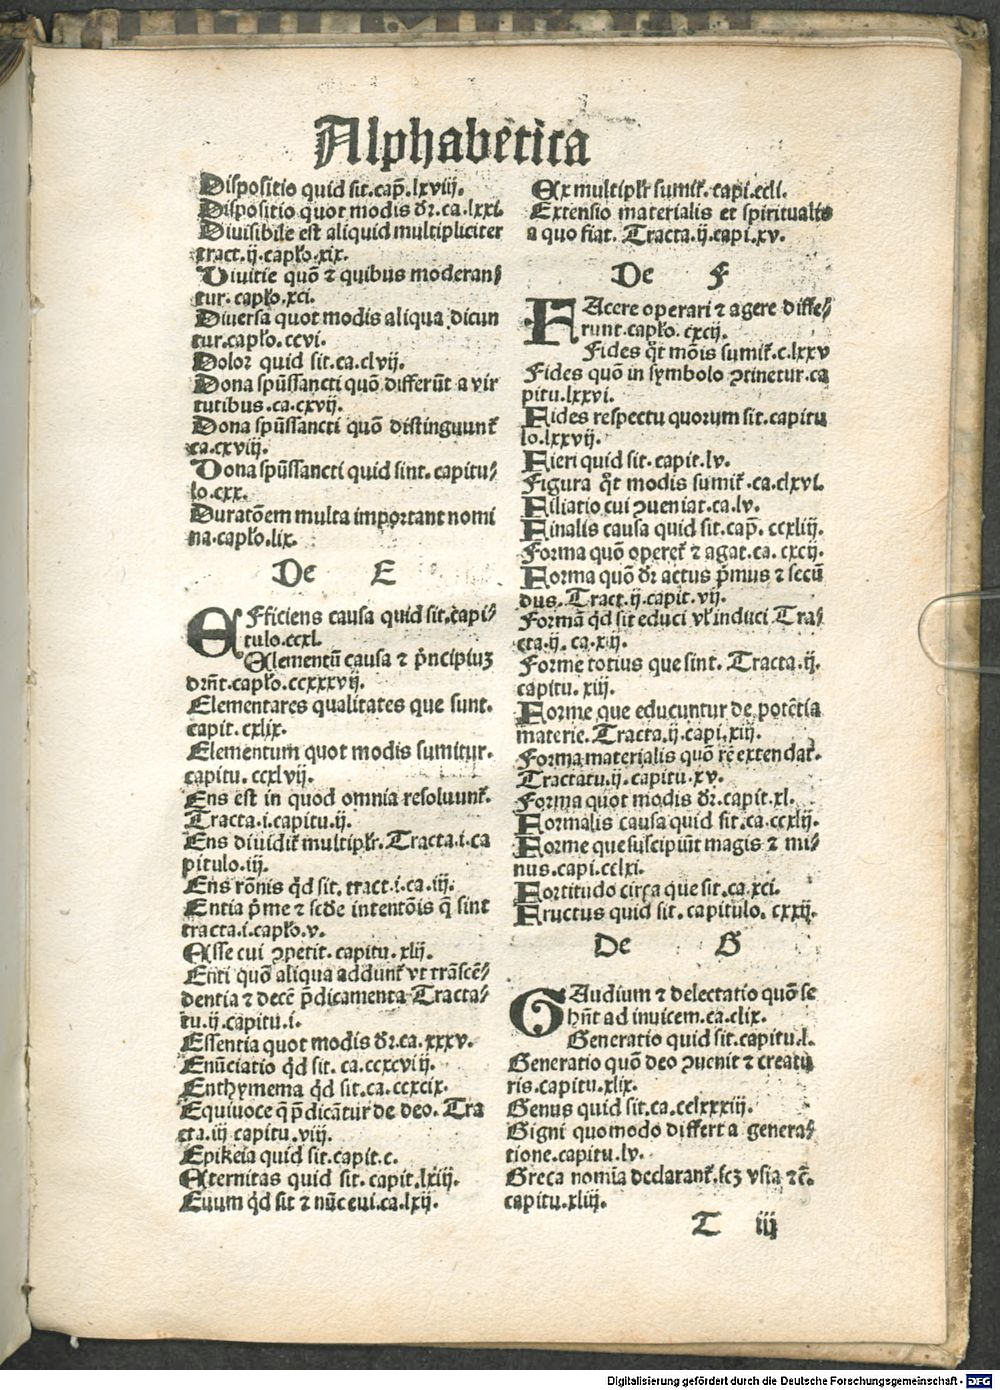 Alphabetica
Dispositio quid sit.cap̄.lxviij.
Dispositio quot modis dr̄.ca.lxxi.
Diuisibile est aliquid multipliciter
tract.ij.capło.xix.
Diuitie quō ⁊ quibus moderan⸗
tur.capło.xci.
Diuersa quot modis aliqua dicun
tur.capło.ccvi.
Dolor quid sit.ca.clvij.
Dona spūssancti quō differūt a vir
tutibus.ca.cxvij.
Dona spūssancti quō distinguunt᷑
ca.cxviij.
Dona spūssancti quid sint.capitu⸗
lo.cxx.
Duratōem multa important nomi
na.capło.lix.
De E
EFficiens causa quid sit.capi⸗
tulo.ccxl.
Elementū causa ⁊ p̄ncipiuꝫ
drn̄t.capło.ccxxxvij.
Elementares qualitates que sunt.
capit.cxlix.
Elementum quot modis sumitur.
capitu.ccxlvij.
Ens est in quod omnia resoluunt᷑.
Tracta.i.capitu.ij.
Ens diuidit᷑ multiplr̄.Tracta.i.ca
pitulo.iij.
Ens rōnis qd̄ sit.tract.i.ca.iij.
Entia p̄me ⁊ scd̄e intentōis q̄ sint
tracta.i.capło.v.
Esse cui ꝯpetit.capitu.xlij.
Enti quō aliqua addunt᷑ vt trāscē⸗
dentia ⁊ decē p̄dicamenta Tracta⸗
tu.ij.capitu.i.
Essentia quot modis dr̄.ca.xxxv.
Enūciatio qd̄ sit.ca.ccxcviij.
Enthymema qd̄ sit.ca.ccxcix.
Equiuoce q̄ p̄dicātur de deo.Tra
cta.iij capitu.viij.
Epikeia quid sit.capit.c.
Eternitas quid sit.capit.lxiij.
Euum qd̄ sit ⁊ nūc eui.ca.lxij.
Ex multiplr̄ sumit᷑.capi.ccli.
Extensio materialis et spiritualis
a quo fiat.Tracta.ij.capi.xv.
De F
FAcere operari ⁊ agere diffe⸗
runt.capło.cxcij.
Fides qt̄ mōis sumit᷑.c.lxxv
Fides quō in symbolo ꝯtinetur.ca
pitu.lxxvi.
Fides respectu quorum sit.capitu
lo.lxxvij.
Fieri quid sit.capit.lv.
Figura qt̄ modis sumit᷑.ca.clxvi.
Filiatio cui ꝯueniat.ca.lv.
Finalis causa quid sit.cap̄.ccxliij.
Forma quō operet᷑ ⁊ agat.ca.cxcij.
Forma quō dr̄ actus p̄mus ⁊ secū
dus.Tract.ij.capit.vij.
Formā qd̄ sit educi vł induci Tra⸗
cta.ij.ca.xij.
Forme totius que sint.Tracta.ij.
capitu.xiij.
Forme que educuntur de potētia
materie.Tracta.ij.capi.xiij.
Forma materialis quō rē extendat᷑.
Tractatu.ij.capitu.xv.
Forma quot modis dr̄.capit.xl.
Formalis causa quid sit.ca.ccxlij.
Forme que suscipiūt magis ⁊ mi⸗
nus.capi.cclxi.
Fortitudo circa que sit.ca.xci.
Fructus quid sit.capitulo.cxxij.
De G
GAudium ⁊ delectatio quō se
hn̄t ad inuicem.ca.clix.
Generatio quid sit.capitu.l.
Generatio quō deo ꝯuenit ⁊ creatu
ris.capitu.xlix.
Genus quid sit.ca.cclxxxiij.
Gigni quomodo differt a genera⸗
tione.capitu.lv.
Greca nomīa declarant᷑.scꝫ vsia ⁊c̄.
capitu.xliij.
T iij
Digitalisierung gefördert durch die Deutsche Forschungsgemeinschaft - DFG